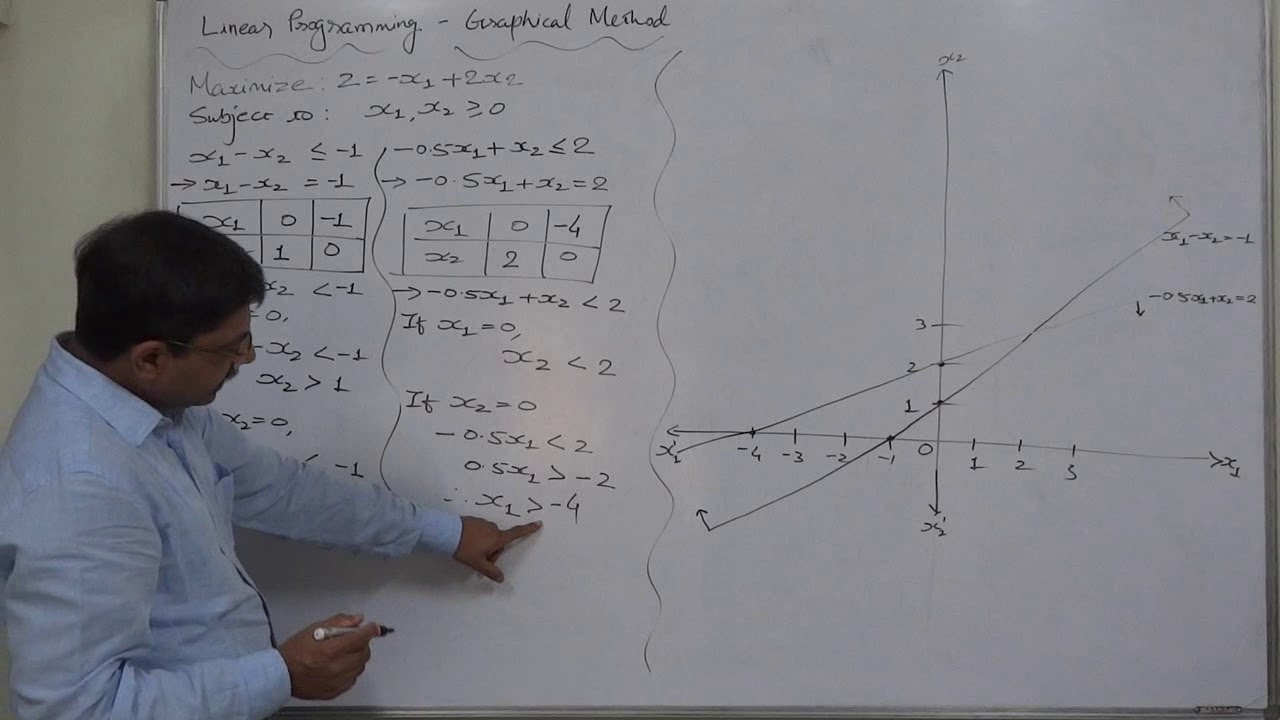 Linear Programming - Graphical Method
Maximize: Z = -x1 + 2x2
Subject to: x1, x2 ≥ 0
x1 - x2 ≤ -1
→ x1 - x2 = -1
x1 0 -1
1 0
x2 < -1
= 0,
- x2 < -1
x2 > 1
x2 = 0,
< -1
-0.5x1 + x2 ≤ 2
→ -0.5x1 + x2 = 2
x1 0 -4
x2 2 0
→ -0.5x1 + x2 < 2
If x1 = 0,
x2 < 2
If x2 = 0
-0.5x1 < 2
0.5x1 > -2
∴ x1 > -4
x2
x1 - x2 = -1
-0.5x1 + x2 = 2
3
2
1
x1' -4 -3 -2 -1 0 1 2 3 x1
x2'